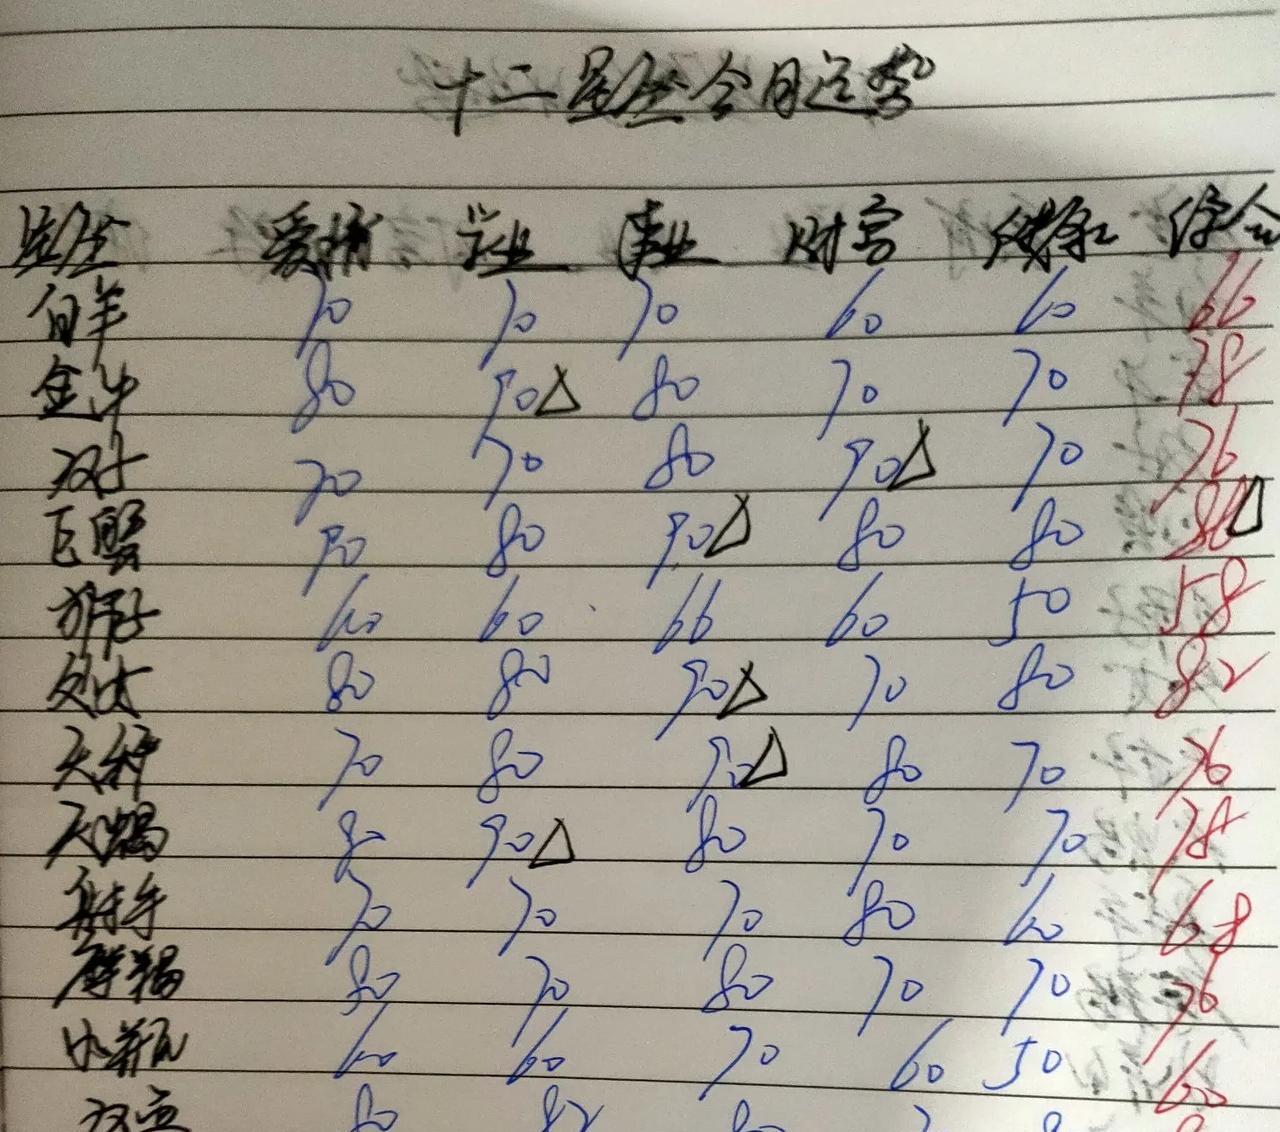 十二星座今日运势
星座 爱情 学业 事业 财富 健康 综合
白羊 70 70 70 60 60 66
金牛 80 90△ 80 70 70 78
双子 70 70 80 90△ 70 76
巨蟹 90 80 90△ 80 80 △
狮子 60 60 66 60 50 58
处女 80 80 90△ 70 80 82
天秤 70 80 90△ 80 70 76
天蝎 80 90△ 80 70 70 78
射手 70 70 70 80 60 68
摩羯 80 70 80 70 70 76
水瓶 60 60 70 60 50 60
双鱼 80 82 80